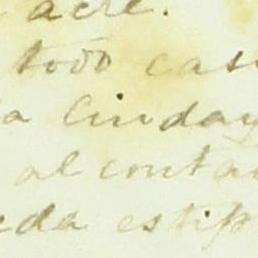 acre.
todo cas
a Cinday
al conta
eda estip